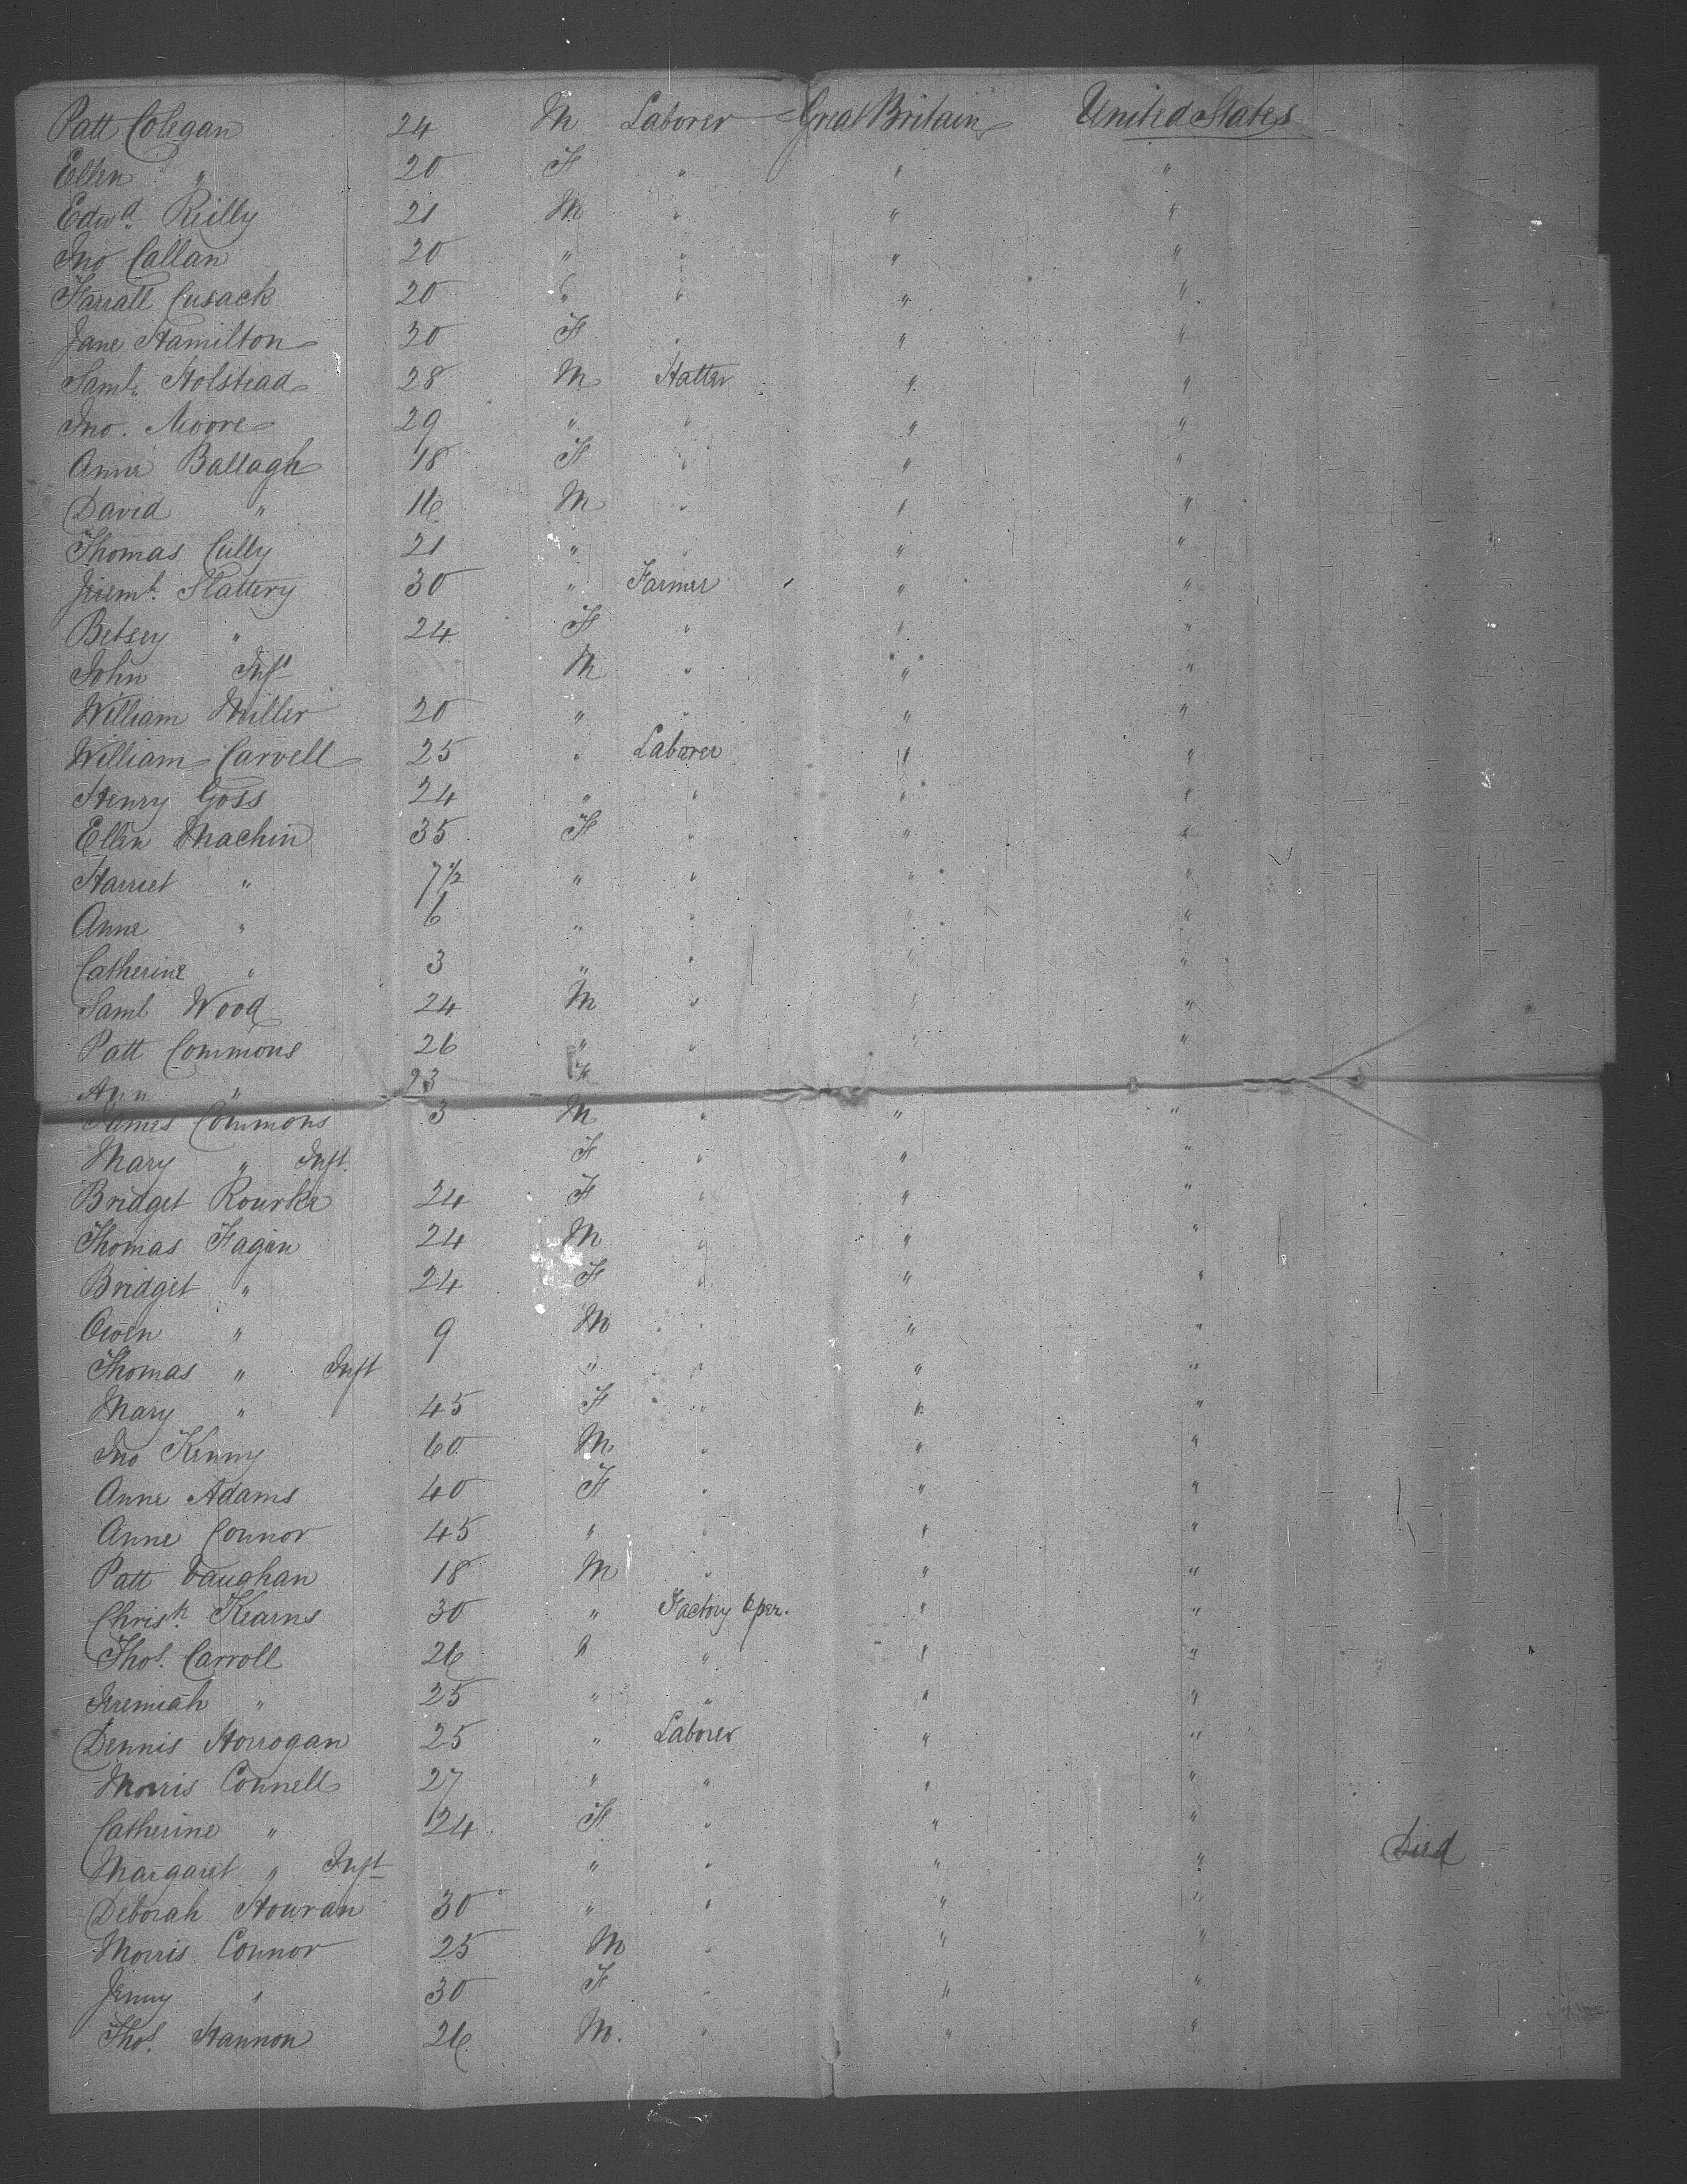 Patt Colegan 24 M Laborer Great Britain United States
Ellen " 20 F " " "
Edwd. Reilly 21 M " " "
Jno Callan 20 " " " "
Farrall Cusack 20 " " " "
Jane Hamilton 30 F " " "
Saml. Holstead 28 M Hatter " "
Jno. Moore 29 " " " "
Anne Ballagh 18 F " " "
David " 16 M " " "
Thomas Cully 21 " " " "
Jeremh. Slattery 30 " Farmer " "
Betsey " 24 F " " "
John Inft M " " "
William Miller 20 " " " "
William Carvell 25 " Laborer " "
Henry Goss 24 " " " "
Ellen Machin 35 F " " "
Harriet " 7 1/2 " " " "
Anne " 6 " " " "
Catherine " 3 " " " "
Saml Wood 24 M " " "
Patt Commons 26 " " " "
Ann " 23 F
James Commons 3 M " " "
Mary " Inft. F " " "
Bridget Rourke 24 F " " "
Thomas Fagan 24 M " " "
Bridget " 24 F " " "
Owen " 9 M " " "
Thomas " Inft " " " "
Mary " 45 F " " "
Jno Kenny 60 M " " "
Anne Adams 40 F " " "
Anne Connor 45 " " " "
Patt Vaughan 18 M " " "
Christr. Kearns 30 " Factory Oper. " "
Thos. Carroll 26 " " " "
Jeremiah " 25 " " " "
Dennis Horrogan 25 " Laborer " "
Morris Connell 27 " " " "
Catherine " 24 F " " "
Margaret " Inft " " " " Died
Deborah Houran 30 " " " "
Morris Connor 25 M " " "
Jenny " 30 F " " "
Thos. Hannon 26 M. " " "